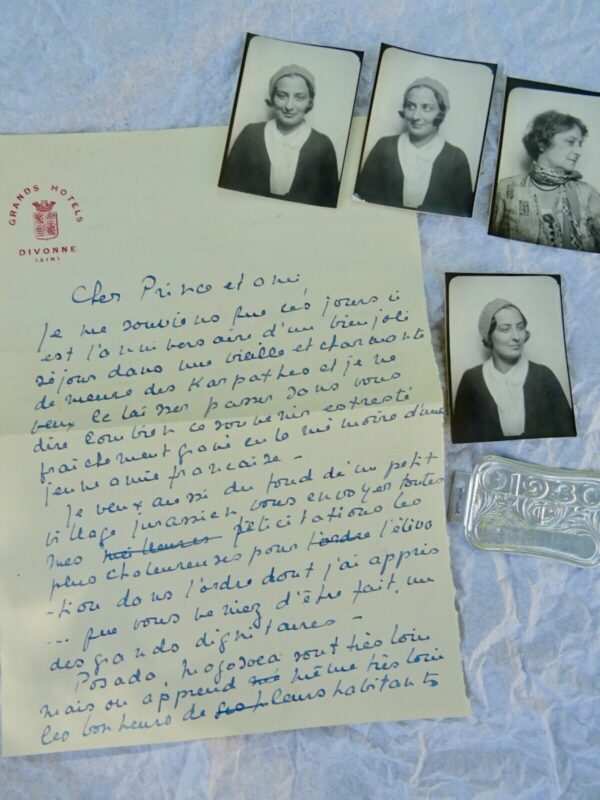 GRANDS HOTELS
DIVONNE
(AIN)
Cher Prince et ami,
Je me souviens que ces jours ci
est l'anniversaire d'un bien joli
séjour dans une vieille et charmante
demeure des Karpathes et je ne
veux le laisser passer sans vous
dire combien ce souvenir est resté
fraîchement gravé en le mémoire d'une
jeune amie française -
Je veux aussi du fond de un petit
village jurassien, vous envoyer toutes
mes meilleures félicitations les
plus chaleureuses pour l'ordre l'éléva
-tion dans l'ordre dont j'ai appris
... que vous veniez d'être fait, un
des grands dignitaires -
Posada, Mogosoea sont très loin
mais on apprend même très loin
les bonheurs de leurs habitants
1930